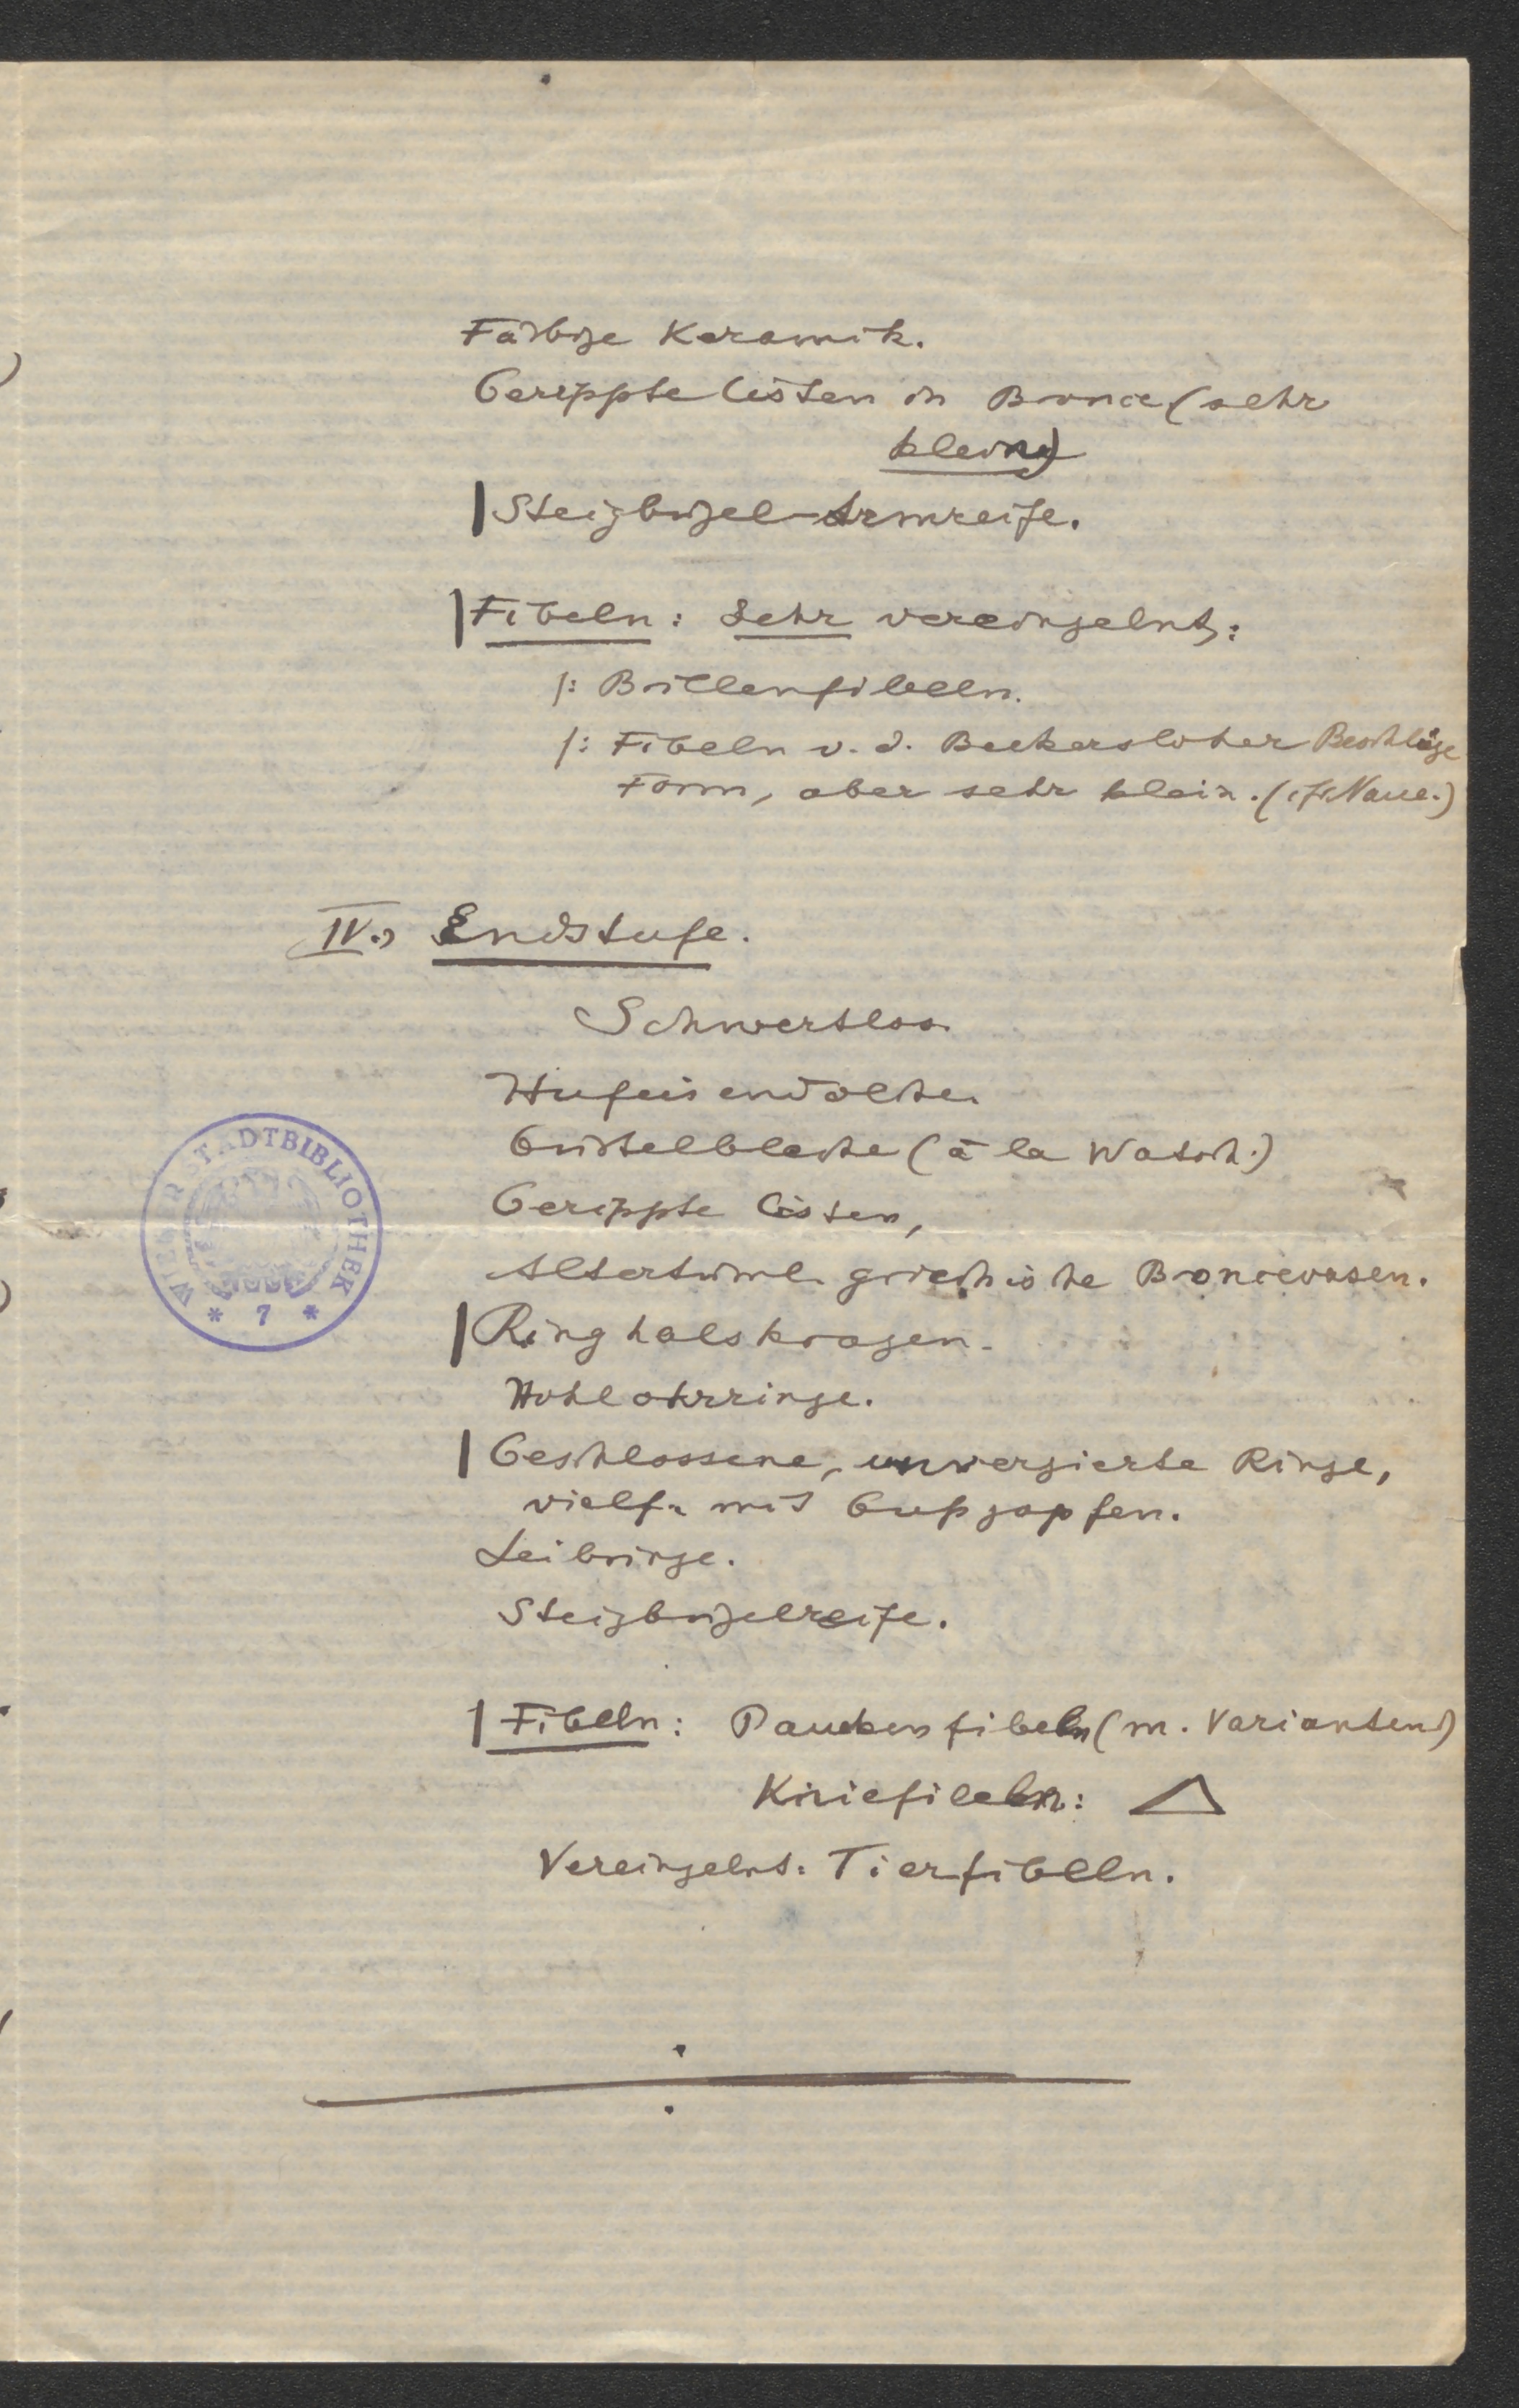 Färbige Keramik.
Gerippte Cisten in Bronce (sehr
klein)
Steigbügel-Armreife.
Fibeln: Sehr vereinzelnt:
/: Brillenfibeln.
/: Fibeln v. d. Beckersloher Beschläge
Form, aber sehr klein. (cf. Naue.)
IV.) Endstufe.
Schwertlos.
Hufeisendolche.
Gürtelbleche (à la Watsch.)
Gerippte Cisten,
Altertüml. griechische Broncevasen.
Ringhalskragen.
Hohlohrringe.
Geschlossene, unverzierte Ringe,
vielf. mit Gußzapfen.
Leibringe.
Steigbügelreife.
Fibeln: Paukenfibeln (m. Varianten)
Kniefibeln:
Vereinzelnt: Tierfibeln.
WIENER STADTBIBLIOTHEK
* 7 *